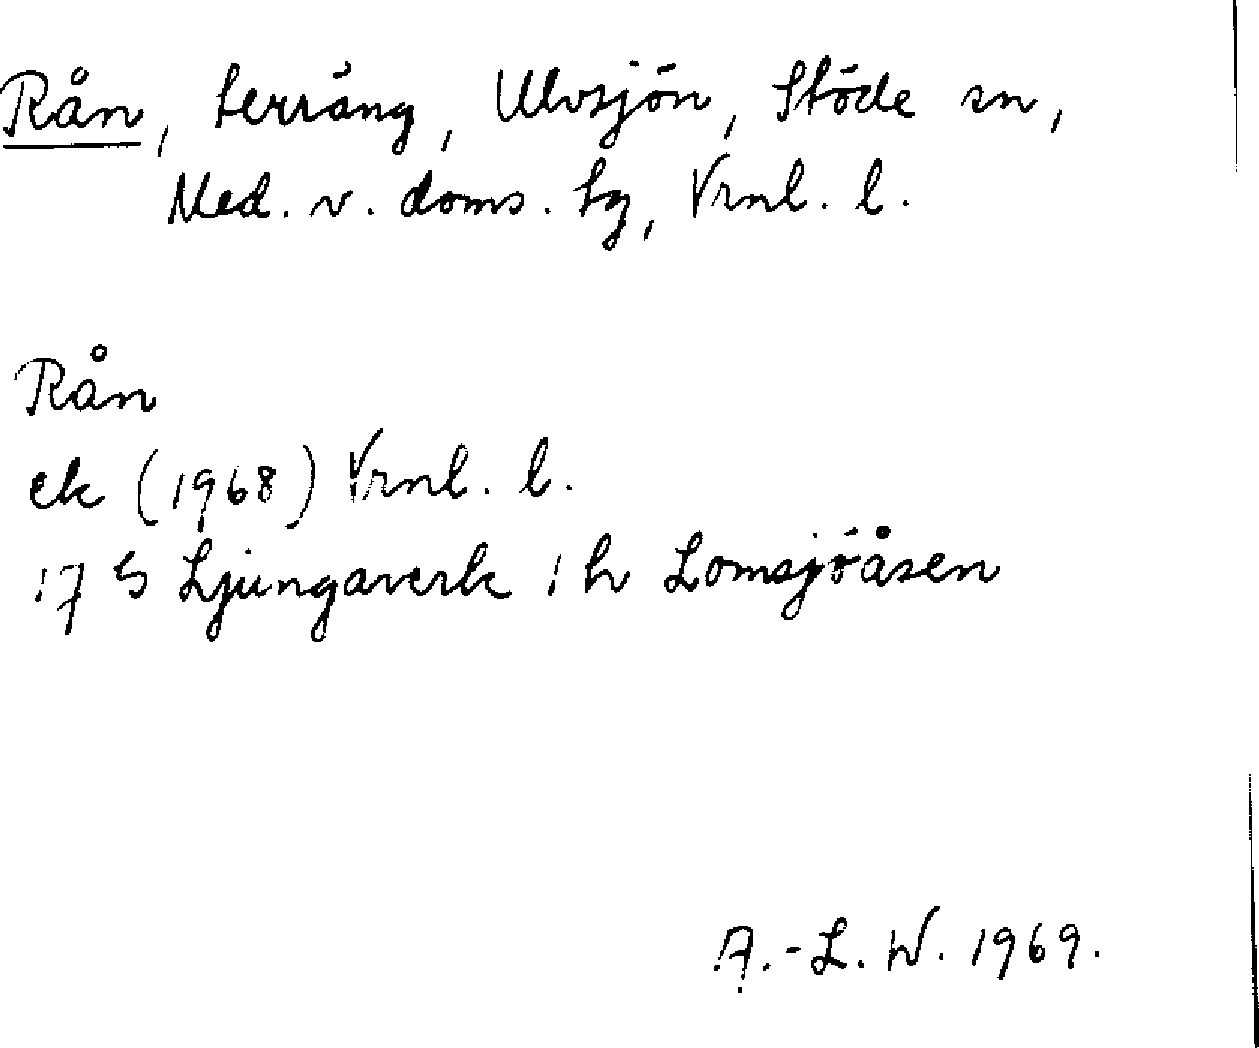 Rån, terräng, Ulvsjön, Stöde sn,
Med. v. doms. tg, Vrnl. l.
Rån
ek (1968) Vrnl. l.
17 G Ljungaverk 1 h Lomsjöåsen
A.-L. W. 1969.